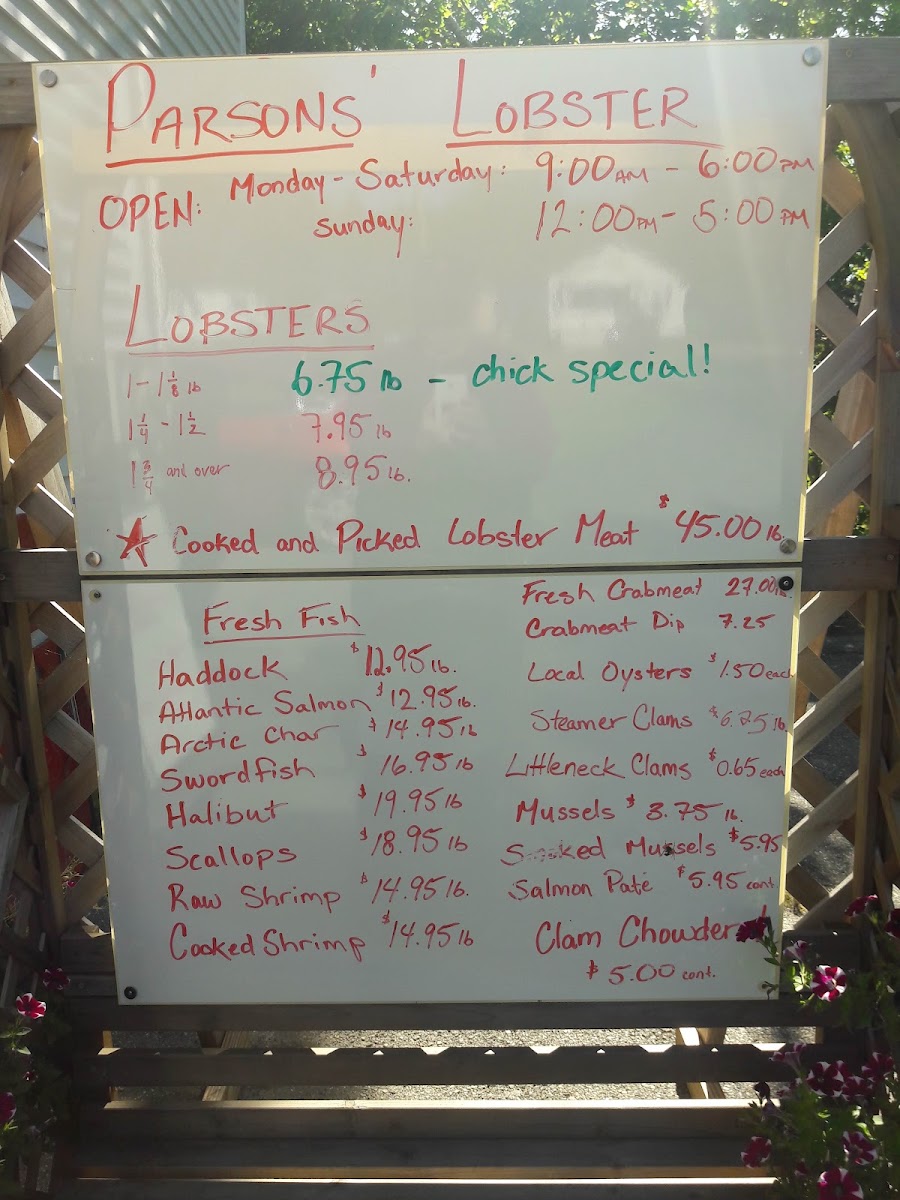 PARSONS' LOBSTER
OPEN: Monday - Saturday: 9:00 AM - 6:00 PM
Sunday: 12:00 PM - 5:00 PM
LOBSTERS
1 - 1 1/8 lb 6.75 lb - chick special!
1 1/4 - 1 1/2 7.95 lb
1 3/4 and over 8.95 lb.
Cooked and Picked Lobster Meat $45.00 lb.
Fresh Fish
Haddock $12.95 lb.
Atlantic Salmon $12.95 lb.
Arctic Char $14.95 lb
Swordfish $16.95 lb
Halibut $19.95 lb
Scallops $18.95 lb
Raw Shrimp $14.95 lb.
Cooked Shrimp $14.95 lb
Fresh Crabmeat 27.00 lb.
Crabmeat Dip 7.25
Local Oysters $1.50 each
Steamer Clams $6.75 lb
Littleneck Clams $0.65 each
Mussels $3.75 lb.
Smoked Mussels $5.95
Salmon Paté $5.95 cont.
Clam Chowder
$5.00 cont.